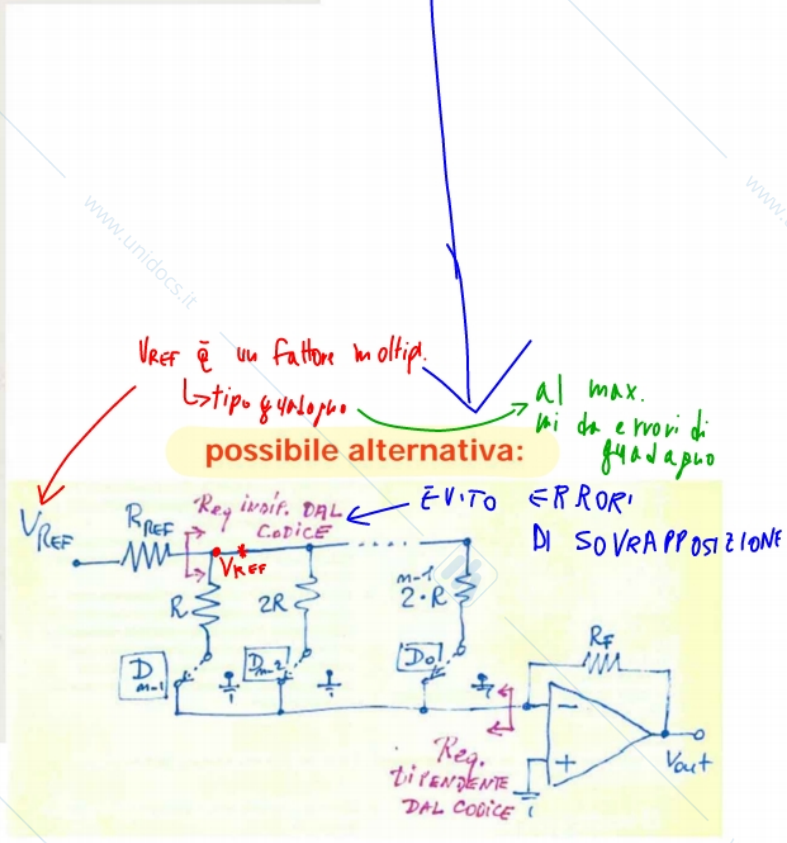 www.unidocs.it
www.
VREF è un fattore moltipl.
↳tipo guadagno
al max.
mi da errori di
guadagno
possibile alternativa:
EVITO ERRORI
DI SOVRAPPOSIZIONE
Req indip. DAL
CODICE
VREF
RREF
VREF*
R
2R
2^(m-1)·R
Dm-1
Dm-2
D0
RF
−
+
Vout
Req.
DIPENDENTE
DAL CODICE